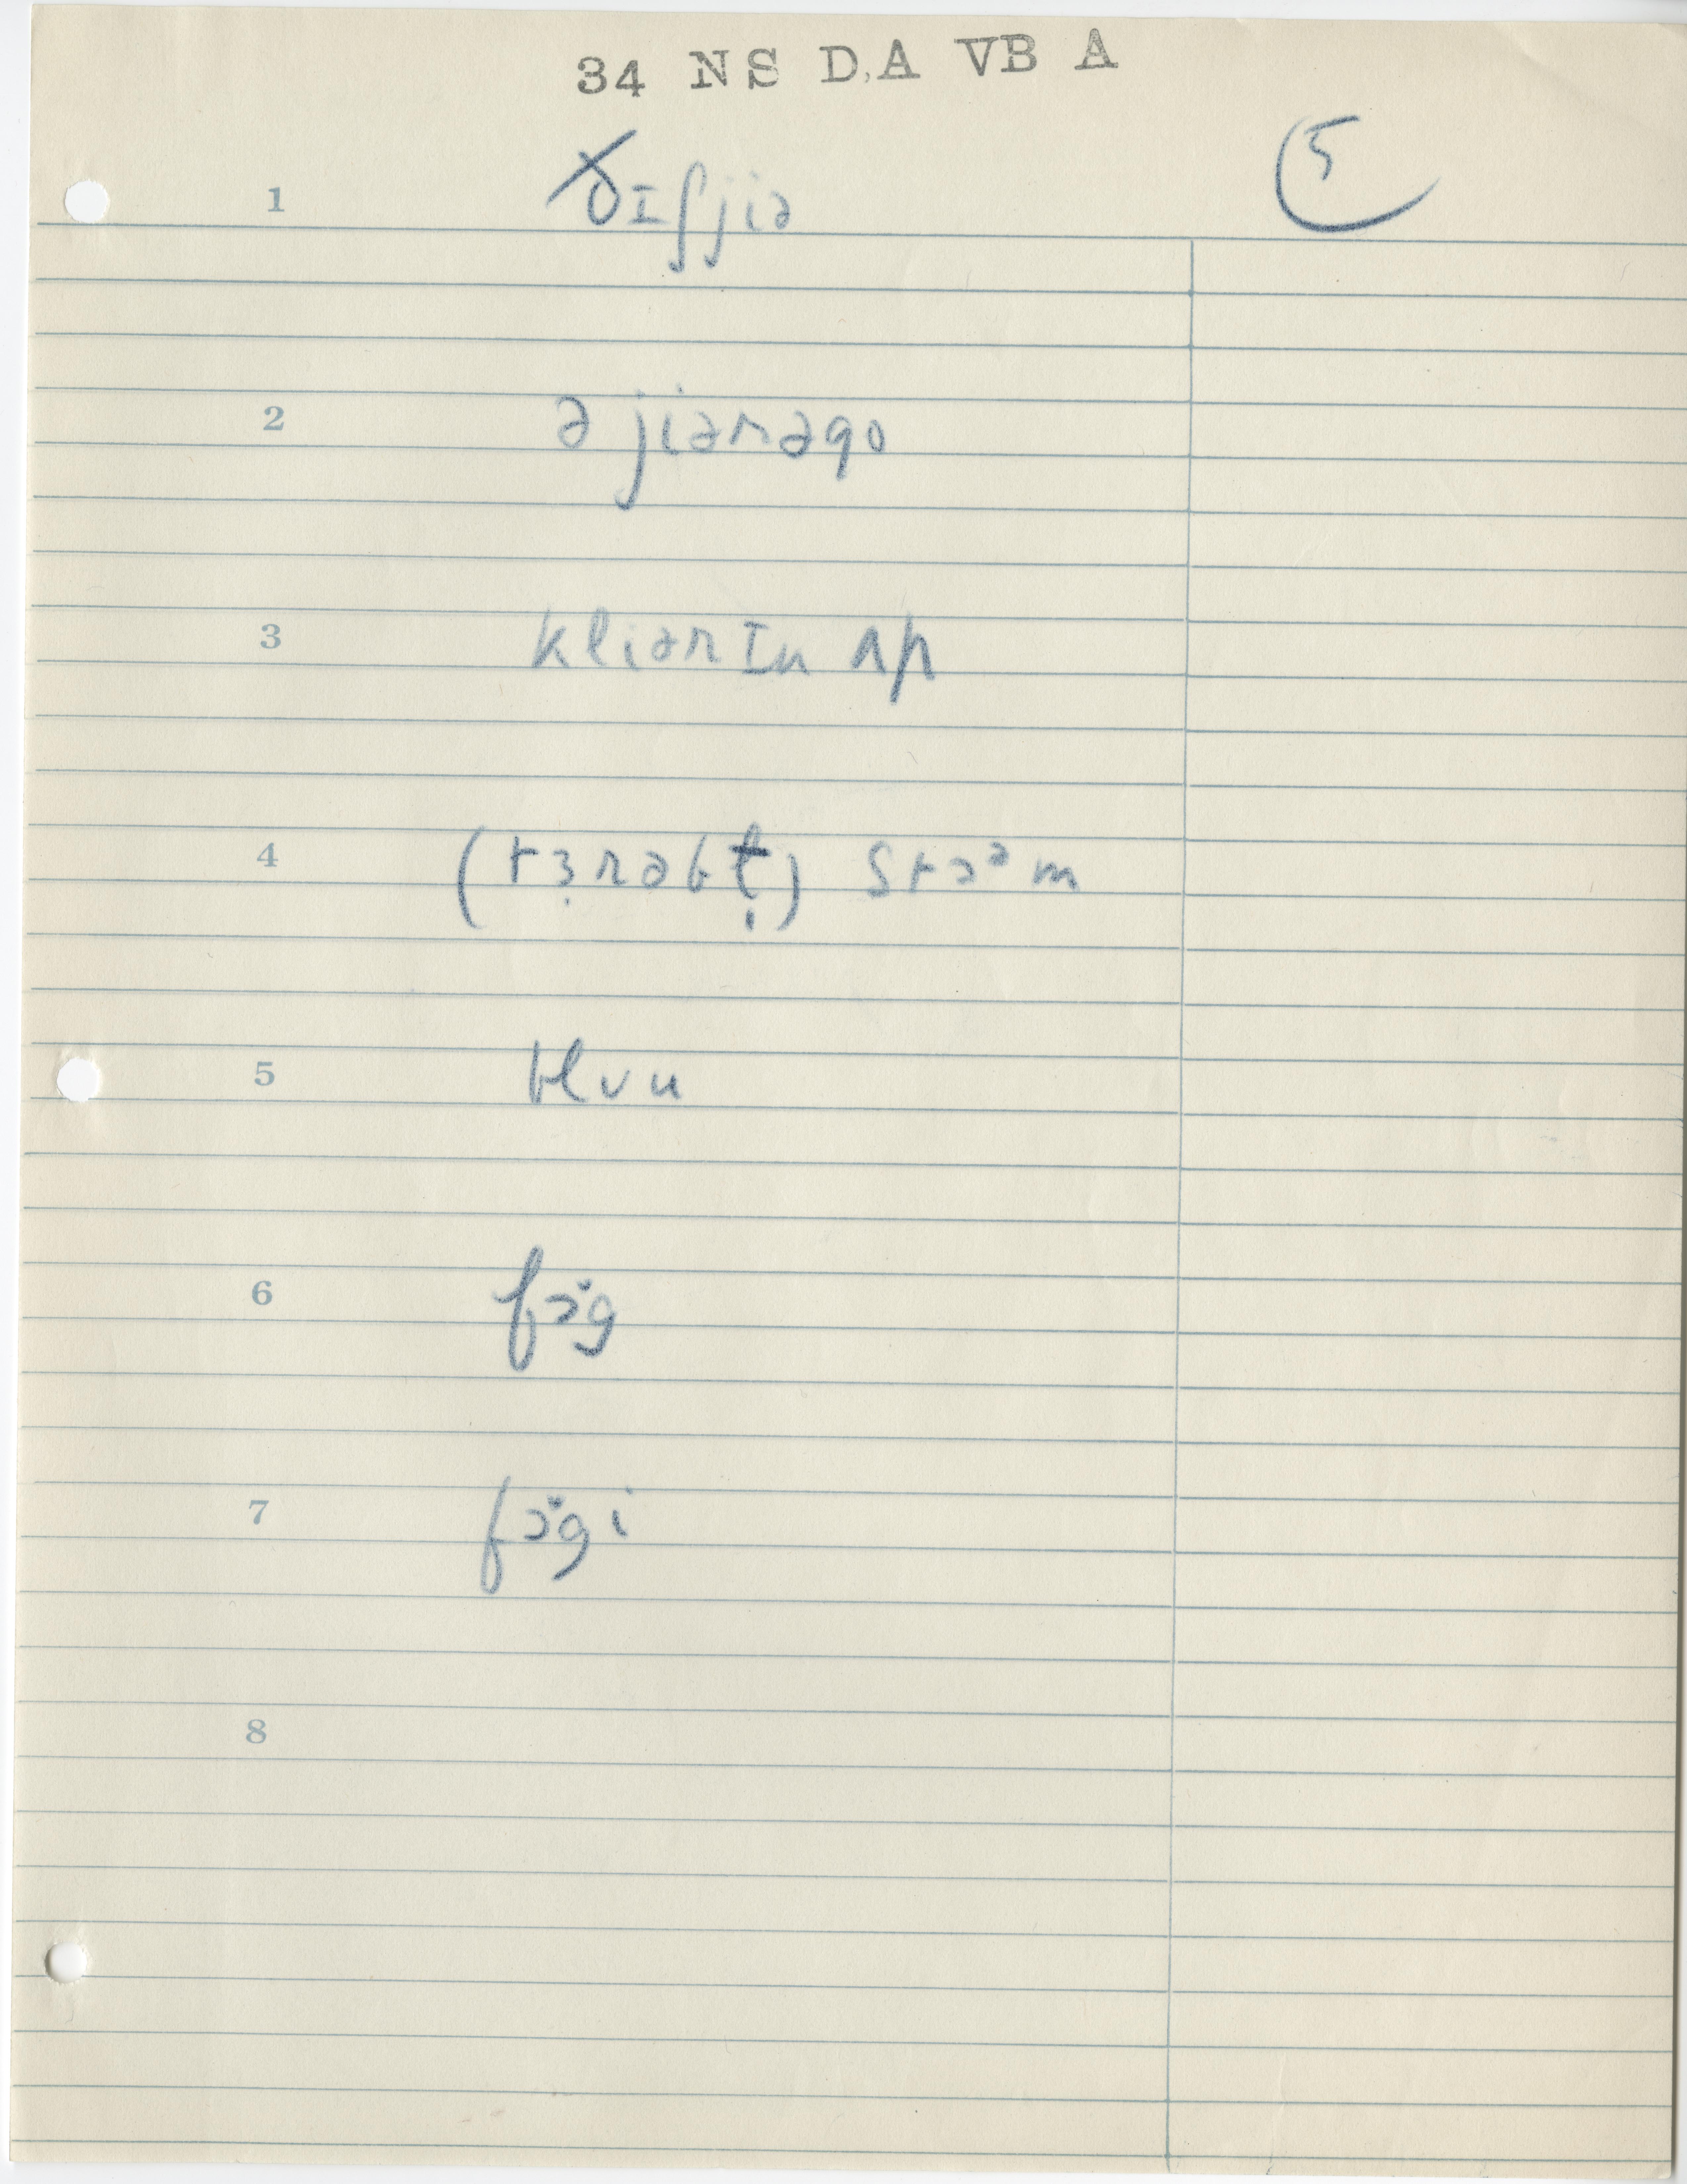 34 NS D.A VB A
5
1 ðɪʃjiə
2 ə jiərəgo
3 kliərɪn ʌp
4 (tɜ̣rəbt̢) stɔᵊm
5 bluu
6 fɔ̆g
7 fɔ̆gi
8